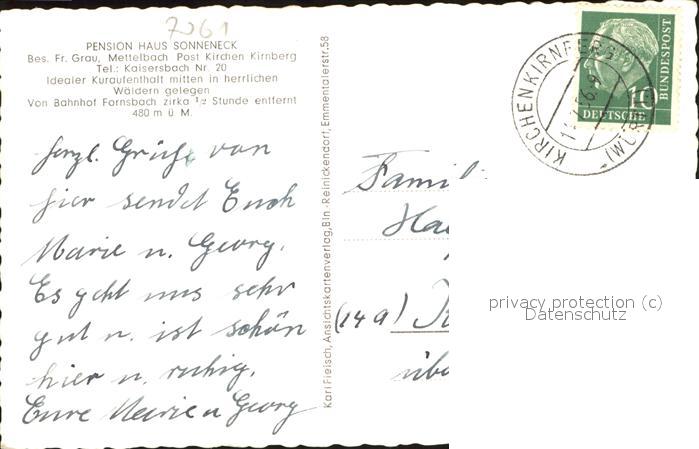 7061
PENSION HAUS SONNENECK
Bes. Fr. Grau, Mettelbach Post Kirchen Kirnberg
Tel.: Kaisersbach Nr. 20
Idealer Kuraufenthalt mitten in herrlichen
Wäldern gelegen
Von Bahnhof Fornsbach zirka ½ Stunde entfernt
480 m ü M.
Herzl. Grüße von
hier sendet Euch
Marie u. Georg.
Es geht uns sehr
gut u. ist schön
hier u. ruhig.
Eure Marie u Georg
Karl Fleisch, Ansichtskartenverlag, Bln.-Reinickendorf, Emmentalerstr. 58
Famil
(14a)
KIRCHENKIRNBERG
(WÜRTT)
10
DEUTSCHE
BUNDESPOST
privacy protection (c)
Datenschutz